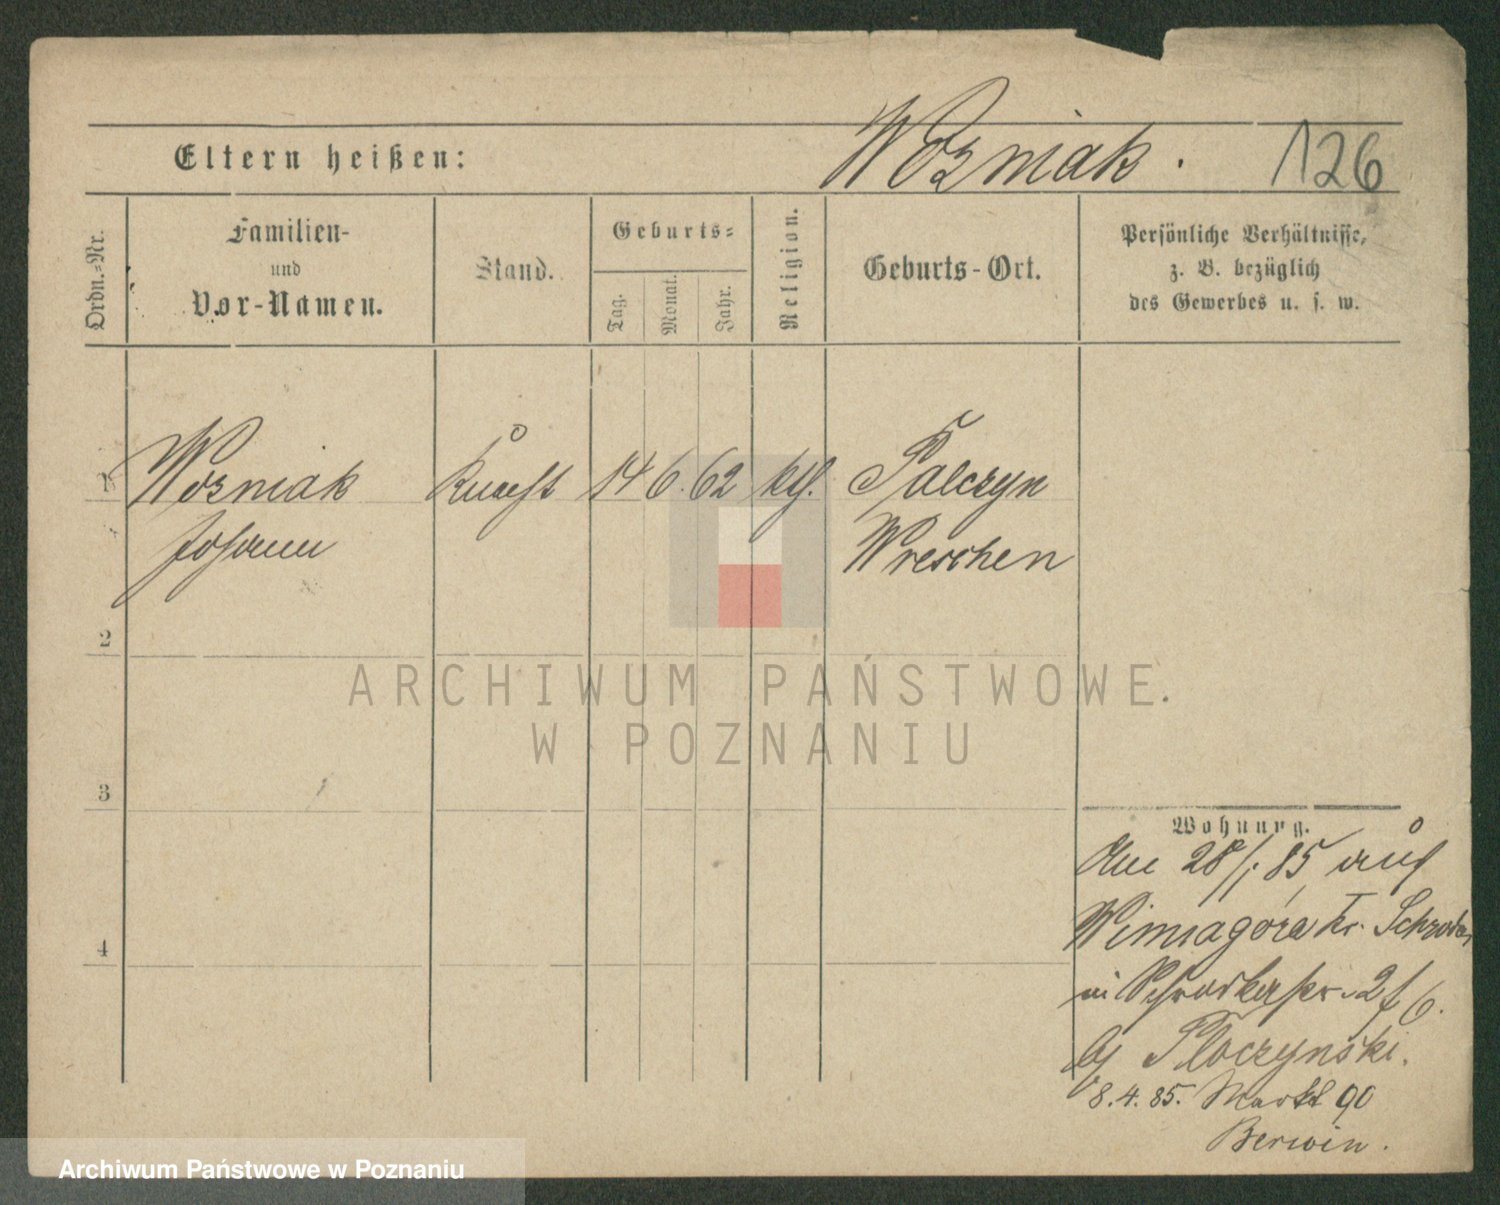 Eltern heißen:
Wozniak. 126
Ordn.-Nr.
Familien-
und
Vor-Namen.
Stand.
Geburts-
Tag.
Monat.
Jahr.
Religion.
Geburts-Ort.
Persönliche Verhältnisse,
z. B. bezüglich
des Gewerbes u. s. w.
1 Wozniak Knecht 14 6. 62 kth. Palczyn
Johann Wreschen
2
3
4
Wohnung.
Am 28/1. 85 auf
Winnagóra Kr. Schroda,
in
bei Ploczynski.
8. 4. 85. Markt 90
Berwin.
ARCHIWUM PAŃSTWOWE
W POZNANIU
Archiwum Państwowe w Poznaniu